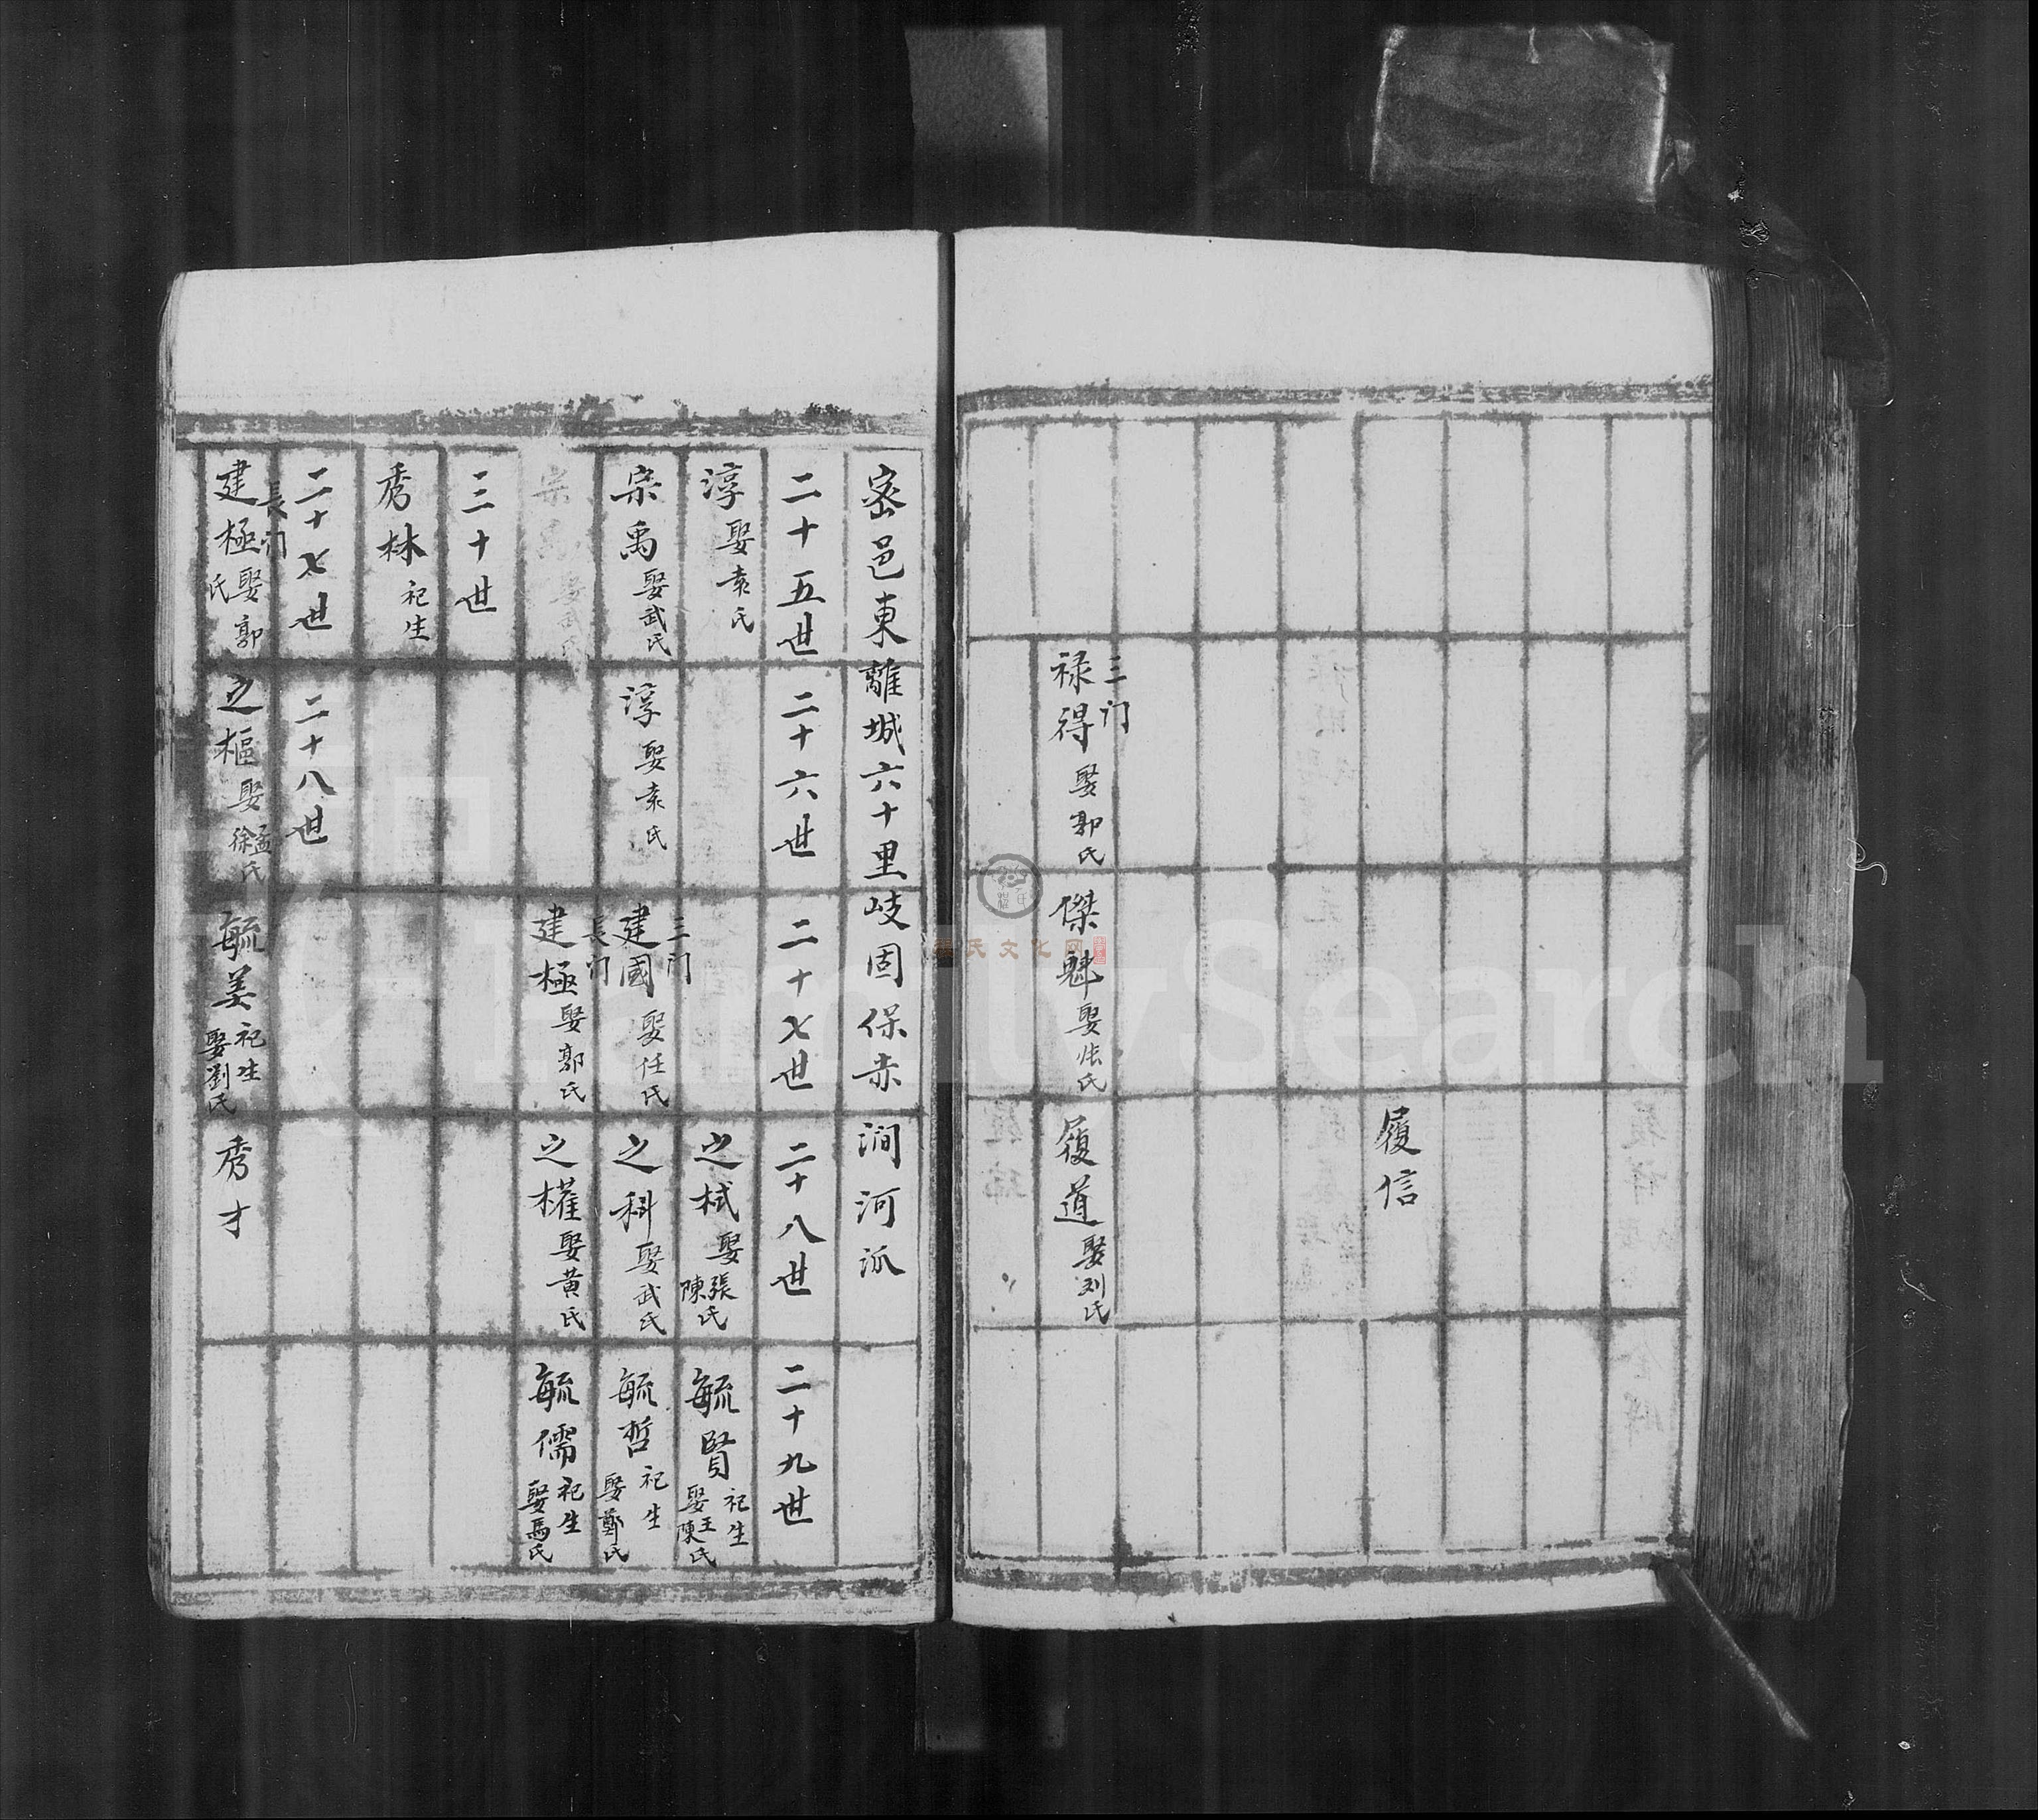 履信
三门
禄得 娶郭氏
傑魁 娶张氏
履道 娶刘氏
密邑東離城六十里岐固保赤澗河派
二十五世
二十六世
二十七世
二十八世
二十九世
淳 娶袁氏
之栻 娶張陳氏
毓賢 祀生 娶王陳氏
宗禹 娶武氏
淳 娶袁氏
三门
建國 娶任氏
之科 娶武氏
毓哲 祀生 娶鄭氏
長门
建極 娶郭氏
之權 娶黄氏
毓儒 祀生 娶馬氏
三十世
秀林 祀生
二十七世
二十八世
長门
建極 娶郭氏
之樞 娶孟徐氏
毓美 祀生 娶劉氏
秀才
FamilySearch
氏文化网